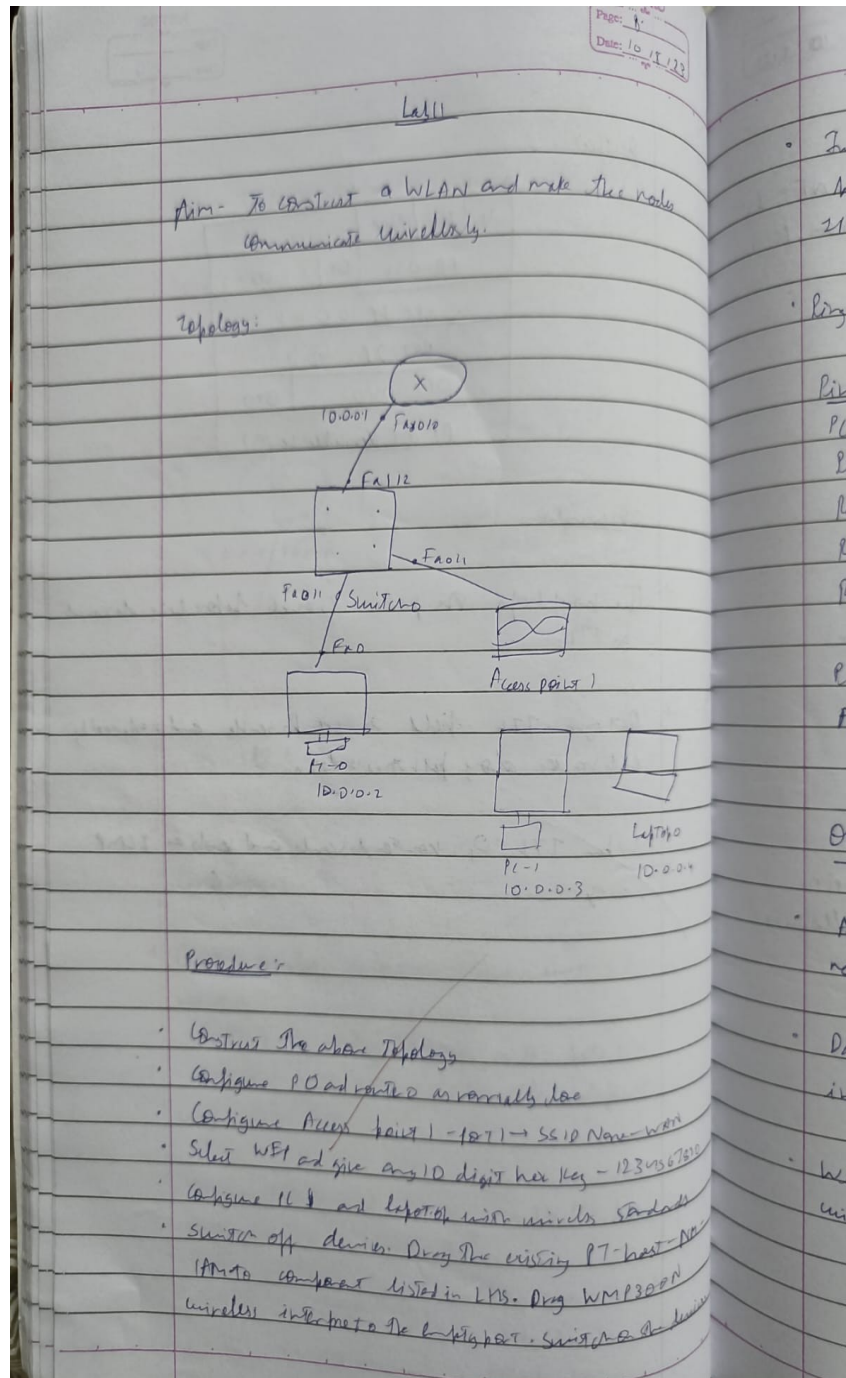 Page: 8
Date: 10/8/23
Lab 11
Aim- To construct a WLAN and make the nodes
communicate wirelessly.
Topology:
X
10.0.0.1 Fa0/0
Fa1/2
Fa0/1
Fa0/1 Switch0
Fa0
Access point 1
PC-0
10.0.0.2
Laptop0
PC-1
10.0.0.4
10.0.0.3
Procedure:
• Construct the above Topology
• Configure PC0 and router0 as normally done
• Configure Access point 1 - port 1 → SSID Name - WLAN
• Select WEP and give any 10 digit hex key - 1234567890
• Configure PC1 and laptop with wireless standards
• Switch off devices. Drag the existing PT-host-NM-
1AM to component listed in LHS. Drag WMP300N
wireless interface to the empty port. Switch on the device